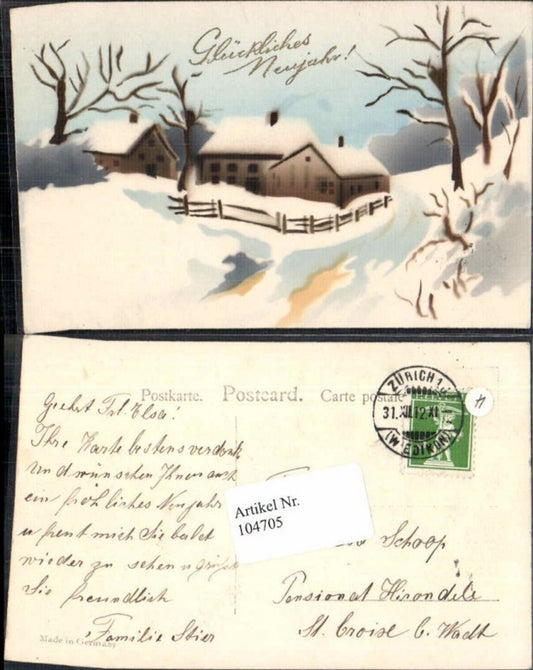 Glückliches
Neujahr!
Postkarte. Postcard. Carte postale
ZÜRICH
31.XII.12.XI
(WIEDIKON)
H
Geehrt Frl. Elsa!
Ihre Karte bestens verdankt
Und wünschen Ihnen auch
ein fröhliches Neujahr
u freut mich Sie balet
wieder zu sehen u grüsst
Sie freundlich
Familie Stier
Made in Germany
Artikel Nr.
104705
Schoop
Pensionat Hirondelle
St. Croise b. Wadt